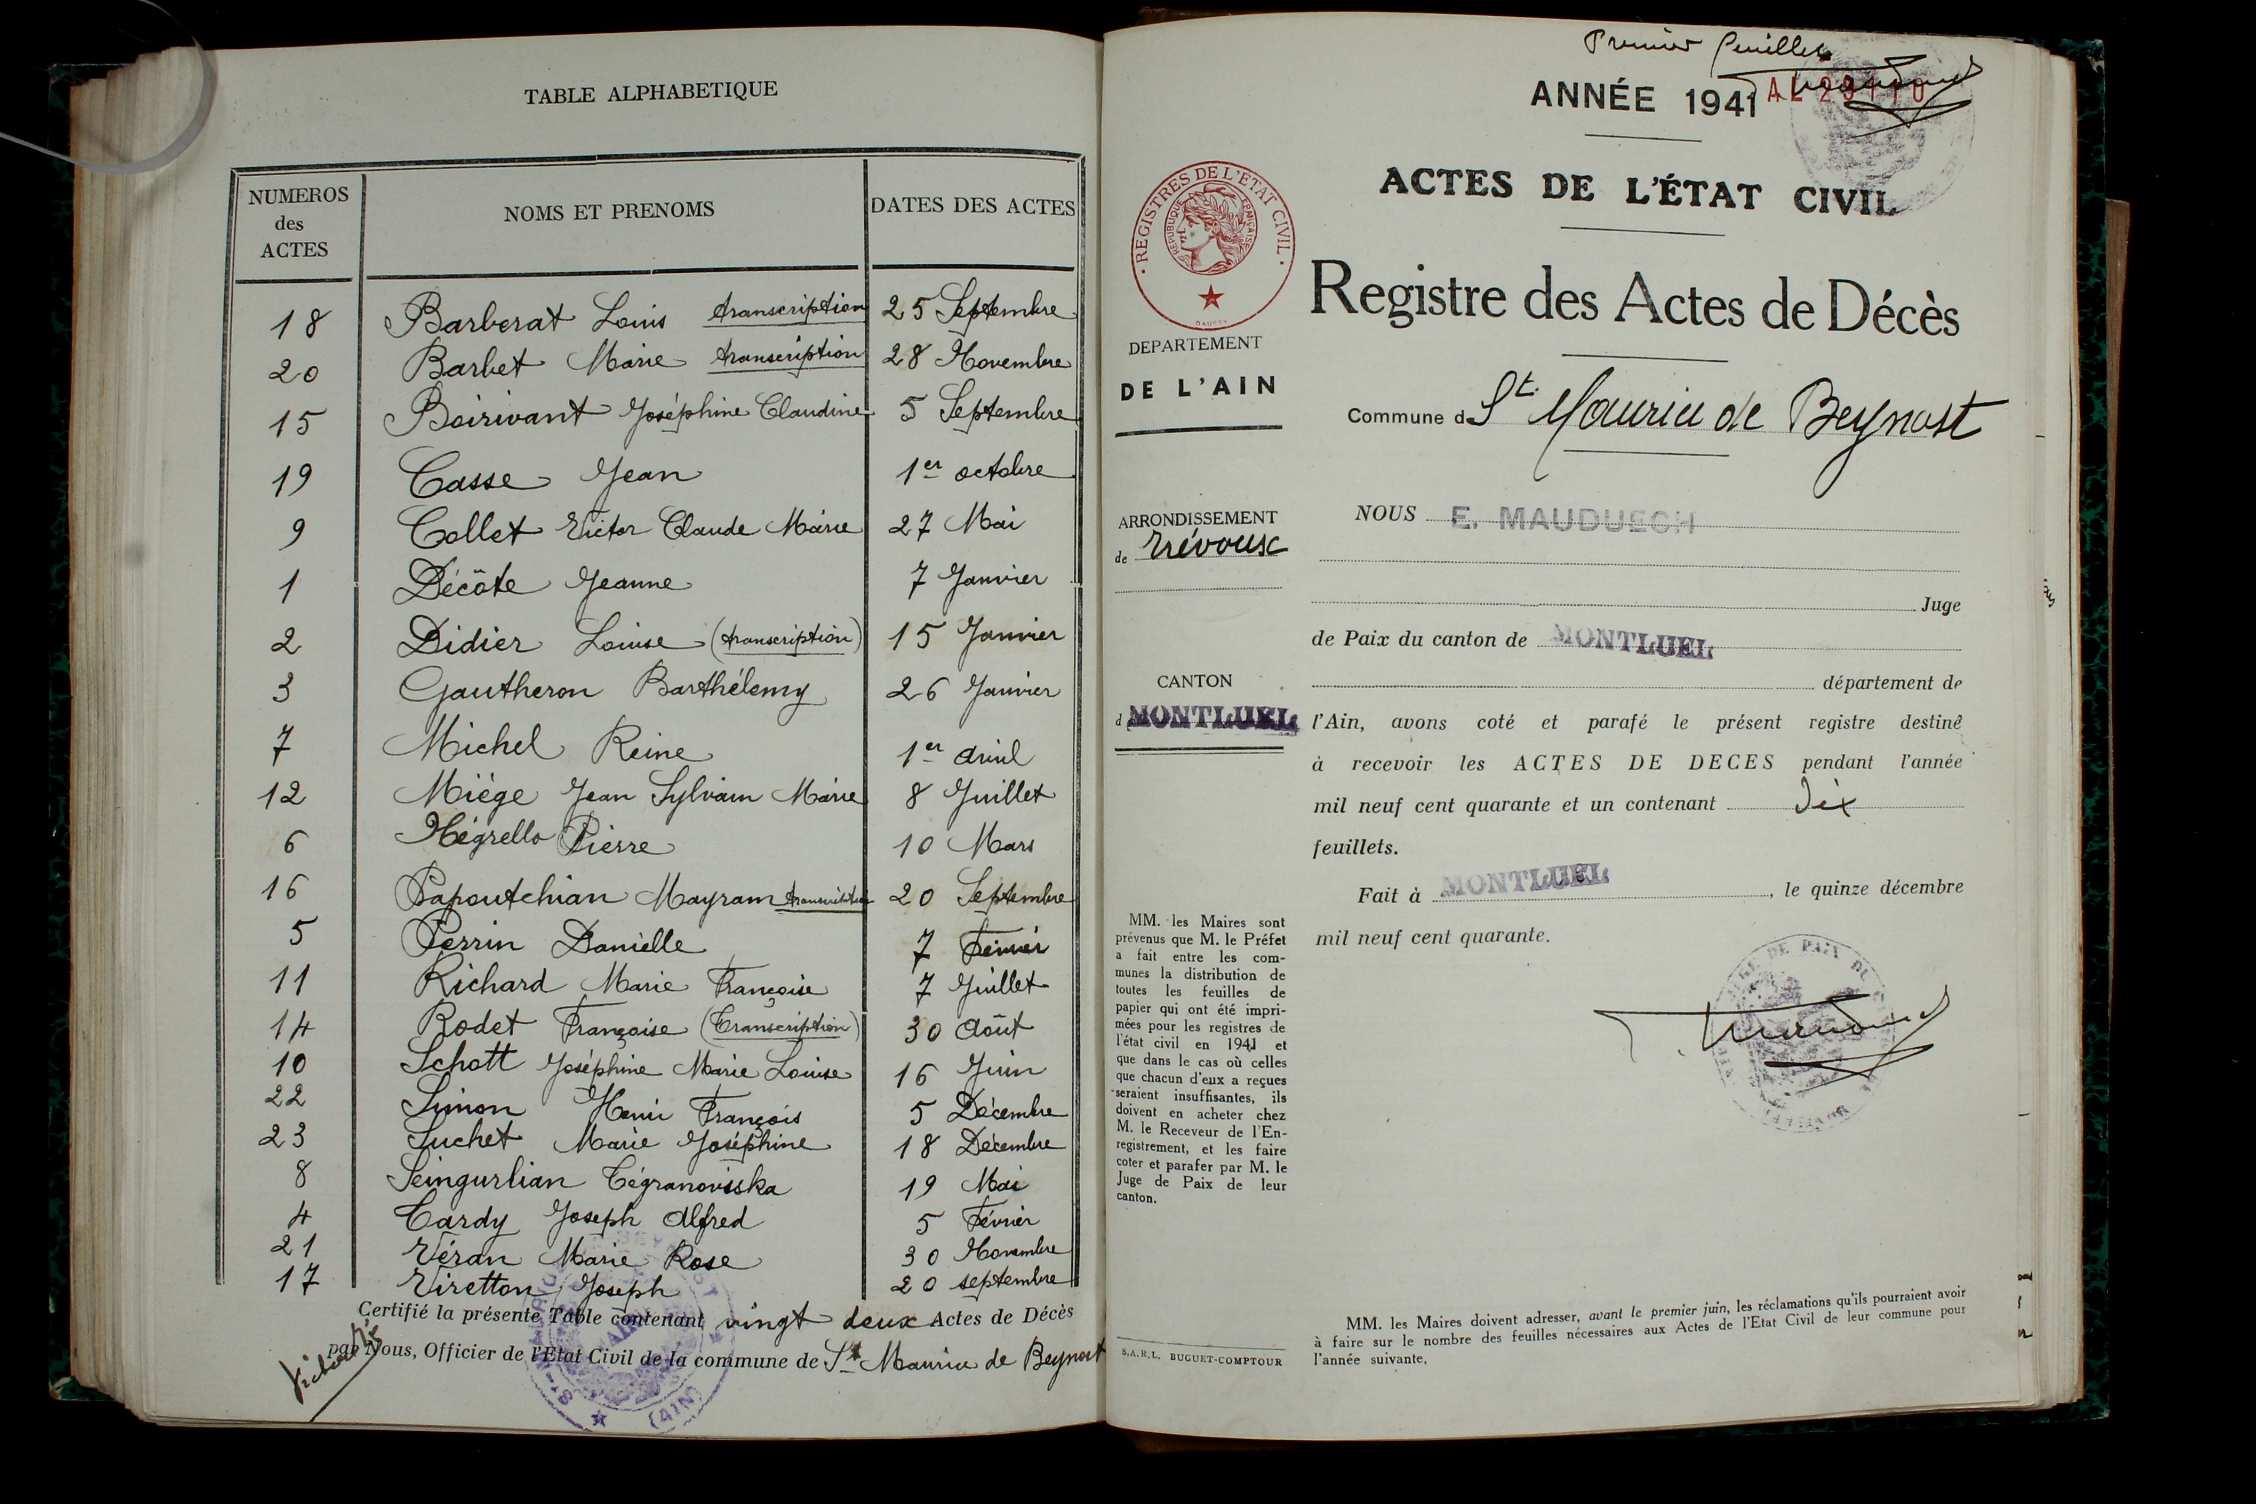 TABLE ALPHABETIQUE
NUMEROS des ACTES NOMS ET PRENOMS DATES DES ACTES
18 Barberat Louis transcription 25 Septembre
20 Barbet Marie transcription 28 Novembre
15 Boirivant Joséphine Claudine 5 Septembre
19 Casse Jean 1er octobre
9 Collet Victor Claude Marie 27 Mai
1 Décôte Jeanne 7 Janvier
2 Didier Louise (transcription) 15 Janvier
3 Gautheron Barthélemy 26 Janvier
7 Michel Reine 1er avril
12 Miège Jean Sylvain Marie 8 Juillet
6 Négrello Pierre 10 Mars
16 Papoutchian Mayram transcription 20 Septembre
5 Perrin Danielle 7 Février
11 Richard Marie Françoise 7 Juillet
14 Rodet Françoise (Transcription) 30 Août
10 Schott Joséphine Marie Louise 16 Juin
22 Simon Henri François 5 Décembre
23 Suchet Marie Joséphine 18 Décembre
8 Seingurlian Tégranoviska 19 Mai
4 Tardy Joseph Alfred 5 Février
21 Véran Marie Rose 30 Novembre
17 Viretton Joseph 20 septembre
Certifié la présente Table contenant vingt deux Actes de Décès
par Nous, Officier de l'Etat Civil de la commune de St Maurice de Beynost
(AIN)
Premier feuillet
ANNÉE 1941
ACTES DE L'ÉTAT CIVIL
Registre des Actes de Décès
Commune d St. Maurice de Beynost
REGISTRES DE L'ETAT CIVIL
REPUBLIQUE FRANÇAISE
DEPARTEMENT
DE L'AIN
ARRONDISSEMENT
de Trévoux
CANTON
d MONTLUEL
MM. les Maires sont
prévenus que M. le Préfet
a fait entre les com-
munes la distribution de
toutes les feuilles de
papier qui ont été impri-
mées pour les registres de
l'état civil en 1941 et
que dans le cas où celles
que chacun d'eux a reçues
seraient insuffisantes, ils
doivent en acheter chez
M. le Receveur de l'En-
registrement, et les faire
coter et parafer par M. le
Juge de Paix de leur
canton.
S.A.R.L. BUGUET-COMPTOUR
NOUS E. MAUDUECH
Juge
de Paix du canton de MONTLUEL
département de
l'Ain, avons coté et parafé le présent registre destiné
à recevoir les ACTES DE DECES pendant l'année
mil neuf cent quarante et un contenant dix
feuillets.
Fait à MONTLUEL, le quinze décembre
mil neuf cent quarante.
JUGE DE PAIX DU
MM. les Maires doivent adresser, avant le premier juin, les réclamations qu'ils pourraient avoir
à faire sur le nombre des feuilles nécessaires aux Actes de l'Etat Civil de leur commune pour
l'année suivante.